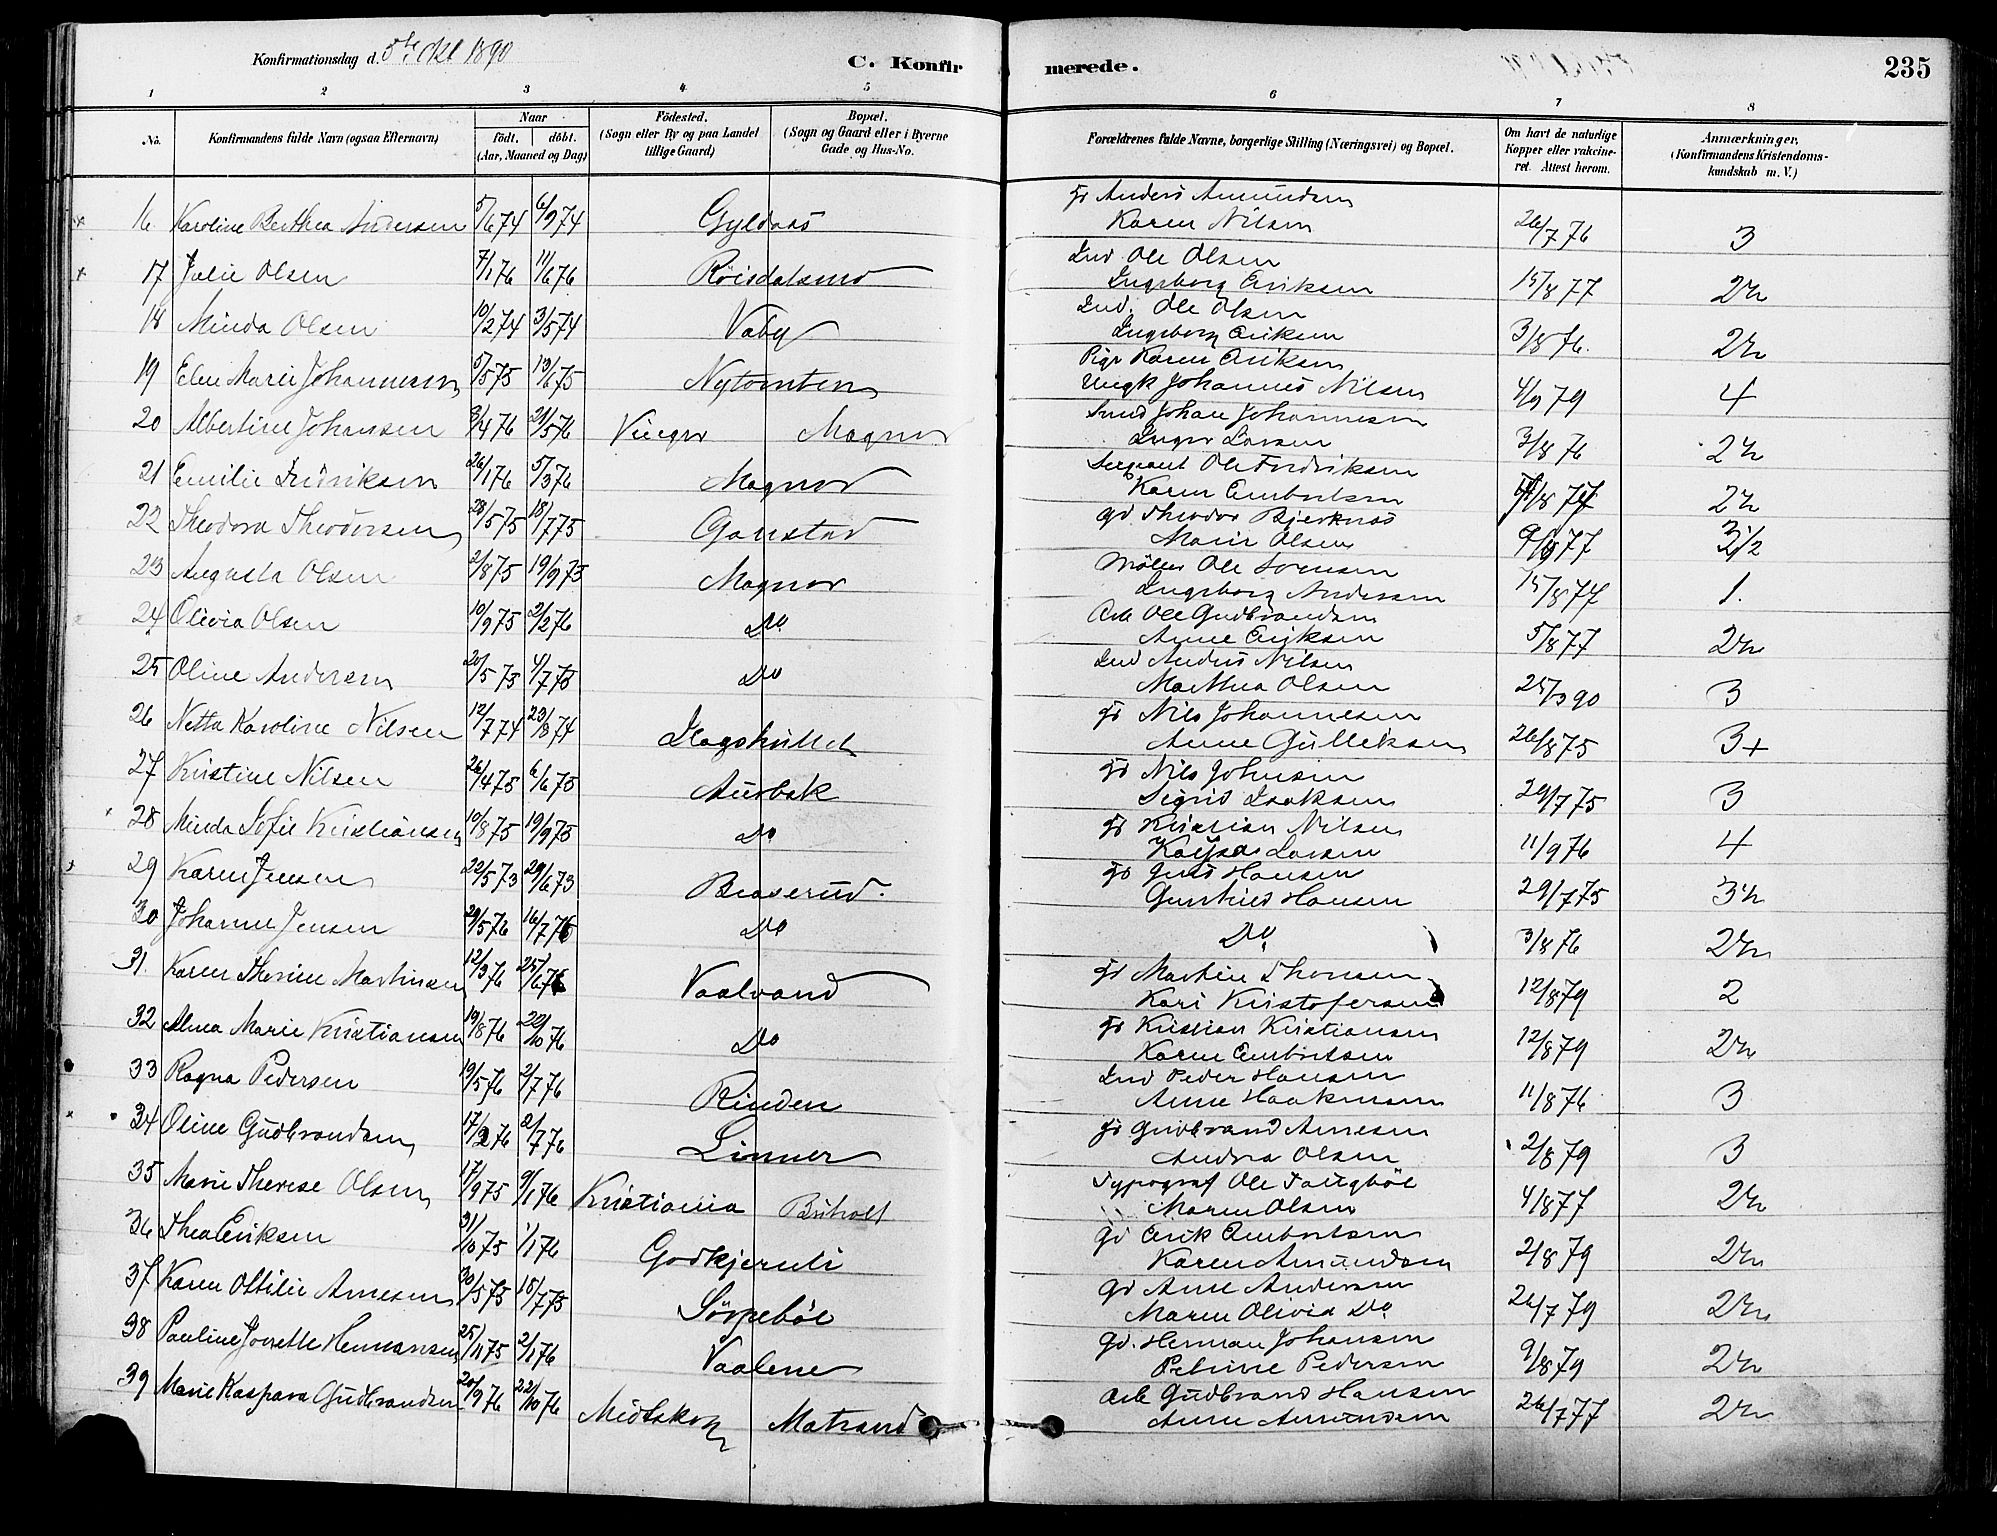 Konfirmationsdag d. 5te Okt 1890
C. Konfirmerede.
235
1 2 3 4 5 6 7 8
No.
Konfirmandens fulde Navn (ogsaa Efternavn)
Naar
født. døbt.
(Aar, Maaned og Dag)
Fødested.
(Sogn eller By og paa Landet
tillige Gaard)
Bopæl.
(Sogn og Gaard eller i Byerne
Gade og Hus-No.
Forældrenes fulde Navne, borgerlige Stilling (Næringsvei) og Bopæl.
Om havt de naturlige
Kopper eller vakcine-
ret. Attest herom.
Anmærkninger.
(Konfirmandens Kristendoms-
kundskab m. V.)
16. Karoline Berthea Andersen 5/6 74 6/9 74 Gyldaas Anders Amundsen
Karen Nilsen 26/7 76 3
17 Julie Olsen 7/1 76 11/6 76 Røisdalsmo Ind. Ole Olsen
Ingeborg Eriksen 15/8 77
18 Minda Olsen 10/2 74 3/5 74 Vaby Ind. Ole Olsen
Ingeborg Eriksen 3/8 76.
19 Eline Marie Johannesen 5/5 75 13/6 75 Nytomten Pige Karen Eriksen
Ungk Johannes Nilsen 4/9 79 4
20 Albertine Johansen 3/4 76 21/5 76 Vinger Magnor Johan Johannesen
Inger Larsen 3/8 76
21 Emilie Fredriksen 26/1 76 5/3 76 Magnor Sergeant Ole Fredriksen
Karen Embretsen
22 Theodora Theodorsen 28/5 75 18/7 75 Gaustad Gd. Theodor Bjerknæs
Marie Olsen
23 Augusta Olsen 2/8 75 19/9 75 Magnor Møller Ole Sørensen
Ingeborg Andersen 15/8 77 1.
24 Olivia Olsen 10/9 75 2/2 76 Do. Arb Ole Gudbrandsen
Anne Eriksen 5/8 77
25 Oline Andersen 20/5 75 4/7 75 Do Ind Anders Nilsen
Marthea Olsen 25/3 90 3
26 Netta Karoline Nilsen 12/7 74 23/8 74 Nils Johannesen
Anne Gulliksen 26/8 75 3+
27 Kristine Nilsen 26/4 75 6/6 75 Aurbæk Nils Johnsen
Sigrid Isaksen 29/7 75 3
28 Minda Sofie Kristiansen 10/8 75 19/9 75 Do Kristian Nilsen
Kajsa Larsen 11/9 76 4
29 Karen Jensen 22/5 73 29/6 73 Braserud. Jens Hansen
Hansen 29/7 75
30 Johanne Jensen 29/5 76 16/7 76 Do Do. 3/8 76
31. Karen Therine Martinsen 12/3 76 25/6 76 Vaalvand Martin Thorsen
Kari Kristofersen 12/8 79 2
32 Alma Marie Kristiansen 19/8 76 22/10 76 Do Kristian Kristiansen
Karen Embretsen 12/8 79
33 Ragna Pedersen 19/5 76 2/7 76 Rinden Ind Peder Hansen
Anne Haakensen 11/8 76 3
34 Oline Gudbrandsen 17/2 76 2/7 76 Linner Gudbrand Arnesen
Andrea Olsen 2/8 79 3
35 Marie Therese Olsen 17/9 75 9/1 76 Kristiania Typograf Ole
Maren Olsen 4/8 77
36 Thea Eriksen 31/10 75 1/1 76 Godkjernli Gd Erik Embretsen
Karen Amundsen 2/8 79
37 Karen Ottilie Arnesen 30/5 75 18/7 75 Sørpebøl Gd Arne Andersen
Maren Olivia Do 26/7 79
38 Pauline Josette Hermansen 25/11 75 2/1 76 Vaalene Gd. Herman Johansen
Petrine Pedersen 9/8 79
39 Marie Kaspara Gudbrandsen 20/9 76 22/10 76 Midtskog Matrand Arb Gudbrand Hansen
Anne Amundsen 26/7 77